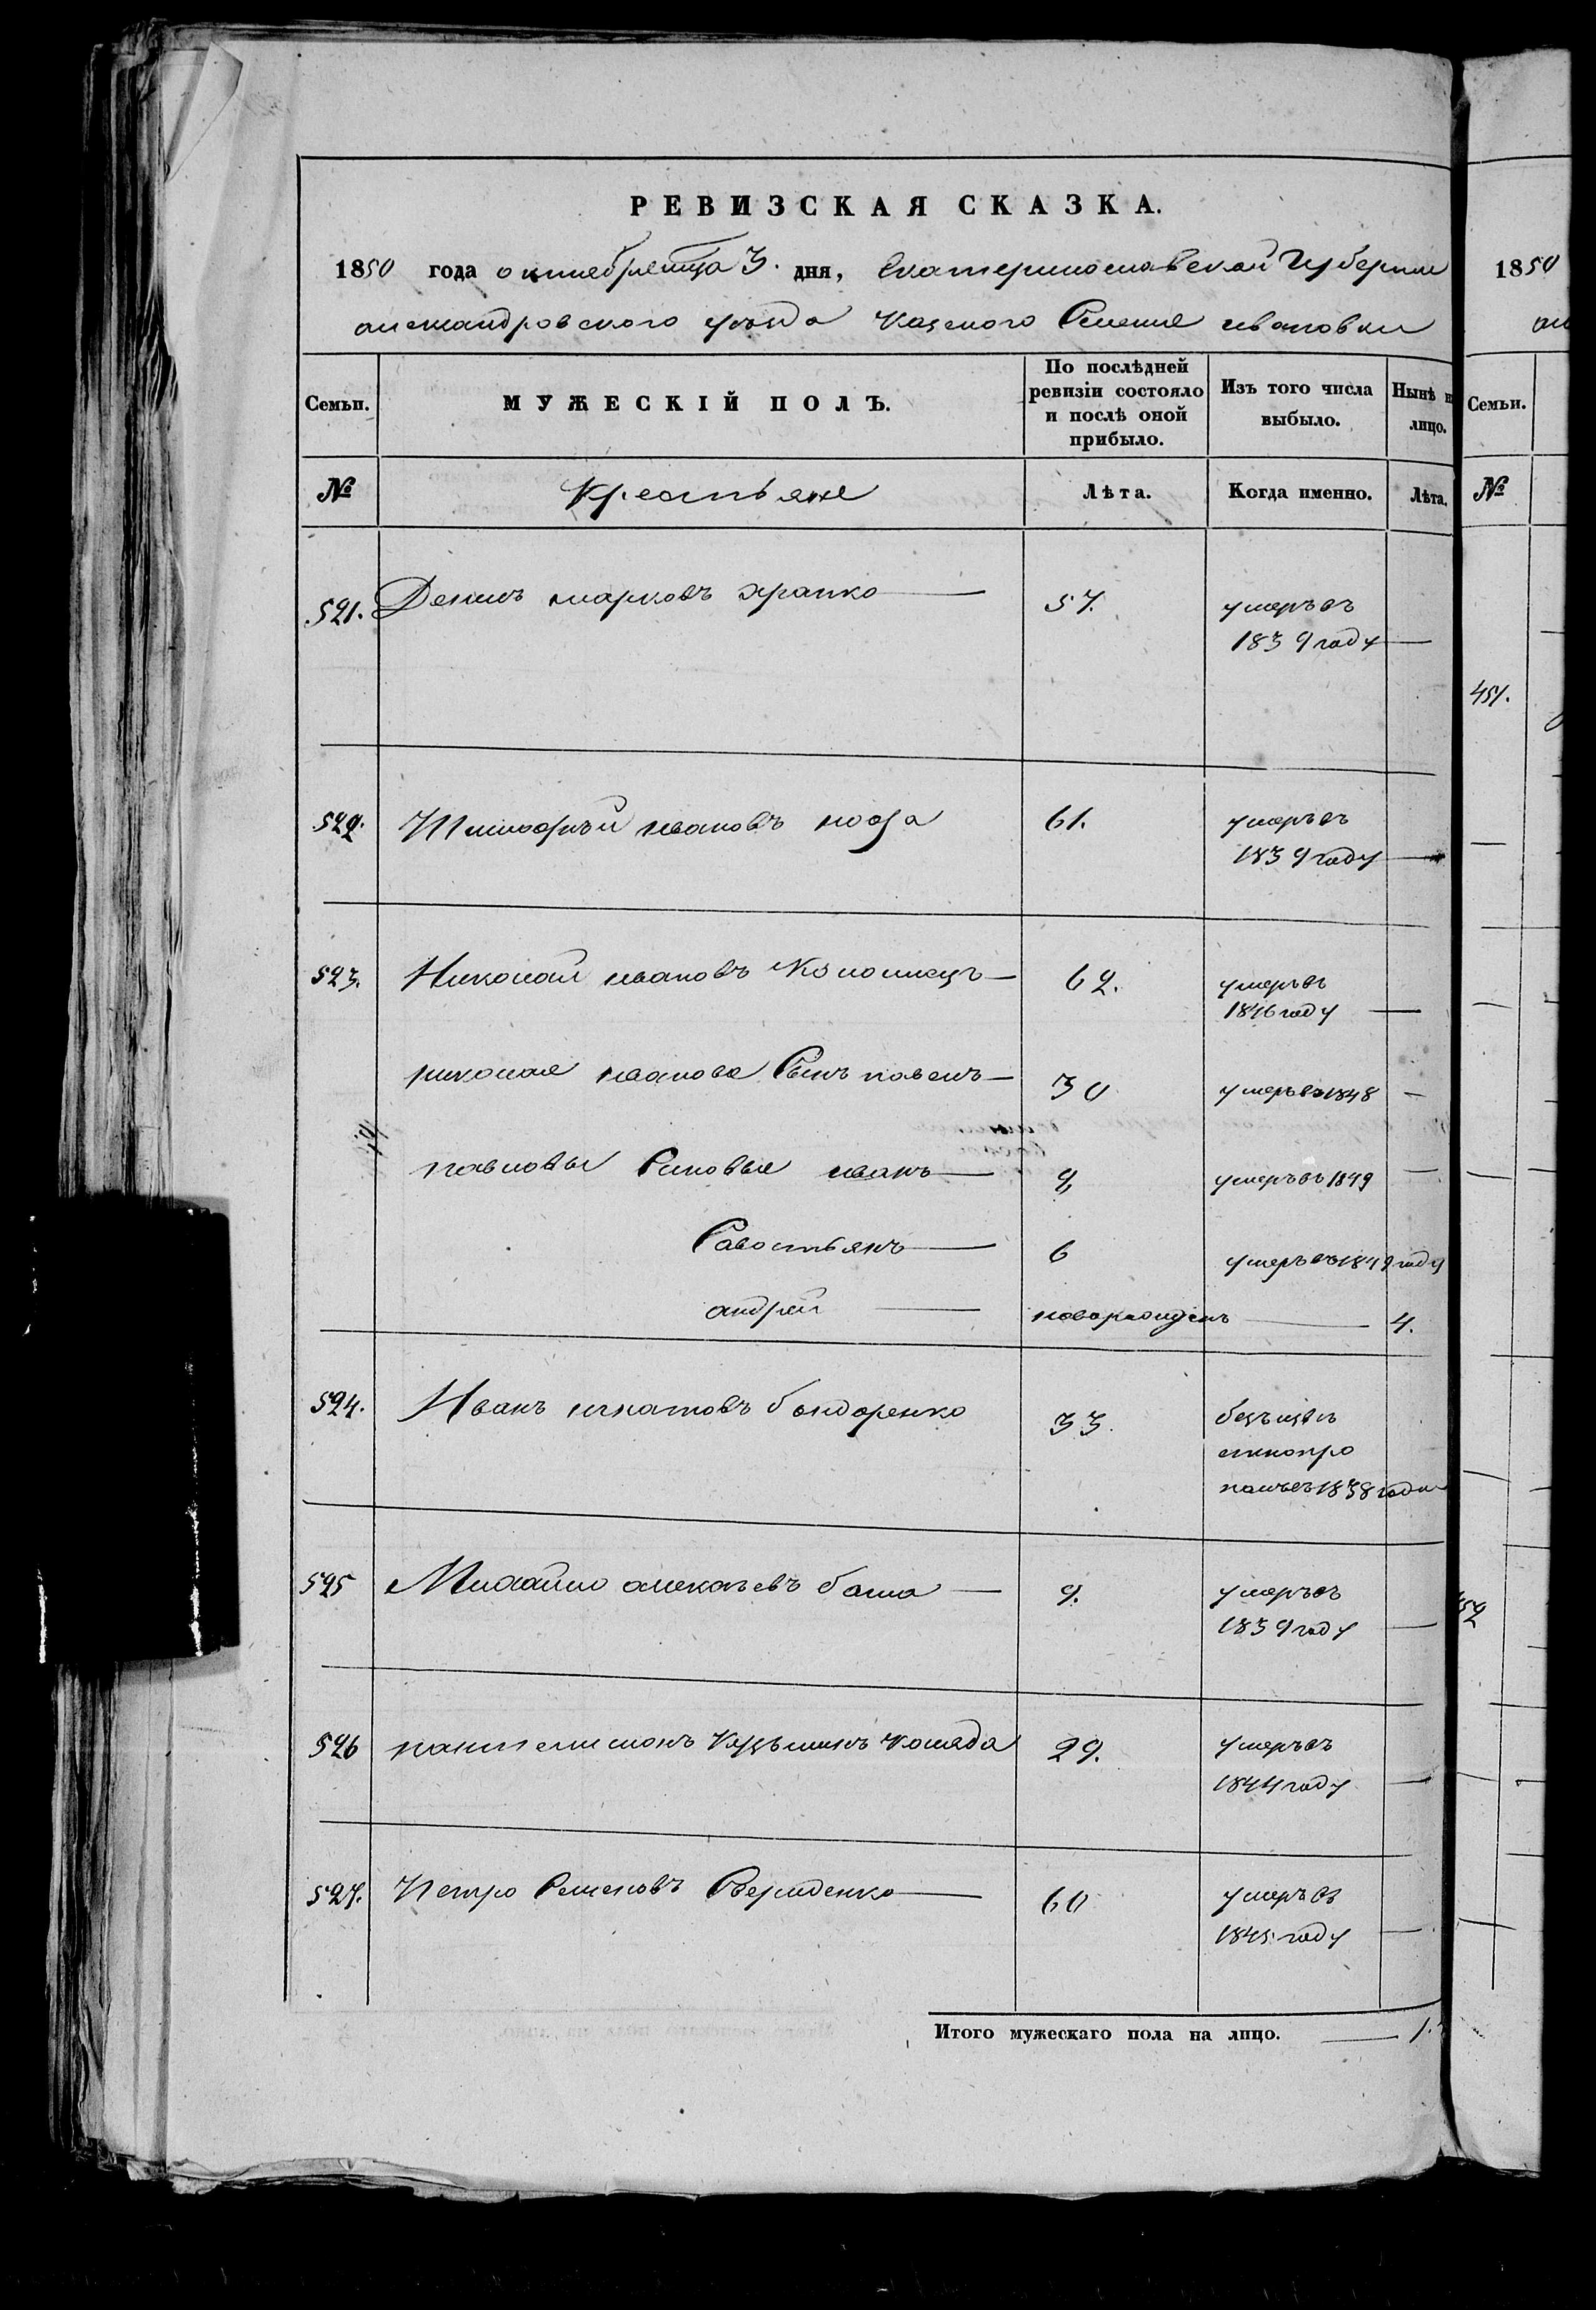 РЕВИЗСКАЯ СКАЗКА.
1850 года октября мца 3. дня, Екатеринославской Губернии
александровского уезда Казеного Селения ивановки
Семьи.
МУЖЕСКІЙ ПОЛЪ.
По послѣдней
ревизіи состояло
и послѣ оной
прибыло.
Изъ того числа
выбыло.
Нынѣ н
лицо.
№
Крестьяне
Лѣта.
Когда именно.
Лѣта.
521. Денисъ марковъ храпко 57. умеръ въ
1839 году
522. Тимофѣй ивановъ 61. умеръ въ
1839 году
523. Николай ивановъ Коломиецъ 62. умеръ въ
1846 году
николая иванова Сынъ павелъ 30 умеръ въ 1848
павловы Сыновья иванъ 9 умеръ въ 1849
Савостьянъ 6 умеръ въ 1849 году
андрей новорожденъ 4.
524. Иванъ игнатовъ бондаренко 33. безъизвѣ
стно про
палъ съ 1838 года
525 Михайло алексѣевъ баша 9. умеръ въ
1839 году
526 пантелимонъ Кузьминъ Коляда 29. умеръ въ
1844 году
527. Петро Семеновъ Свериденко 60 умеръ въ
1845 году
Итого мужескаго пола на лицо. 1.
1850
Семьи.
№
451.
452